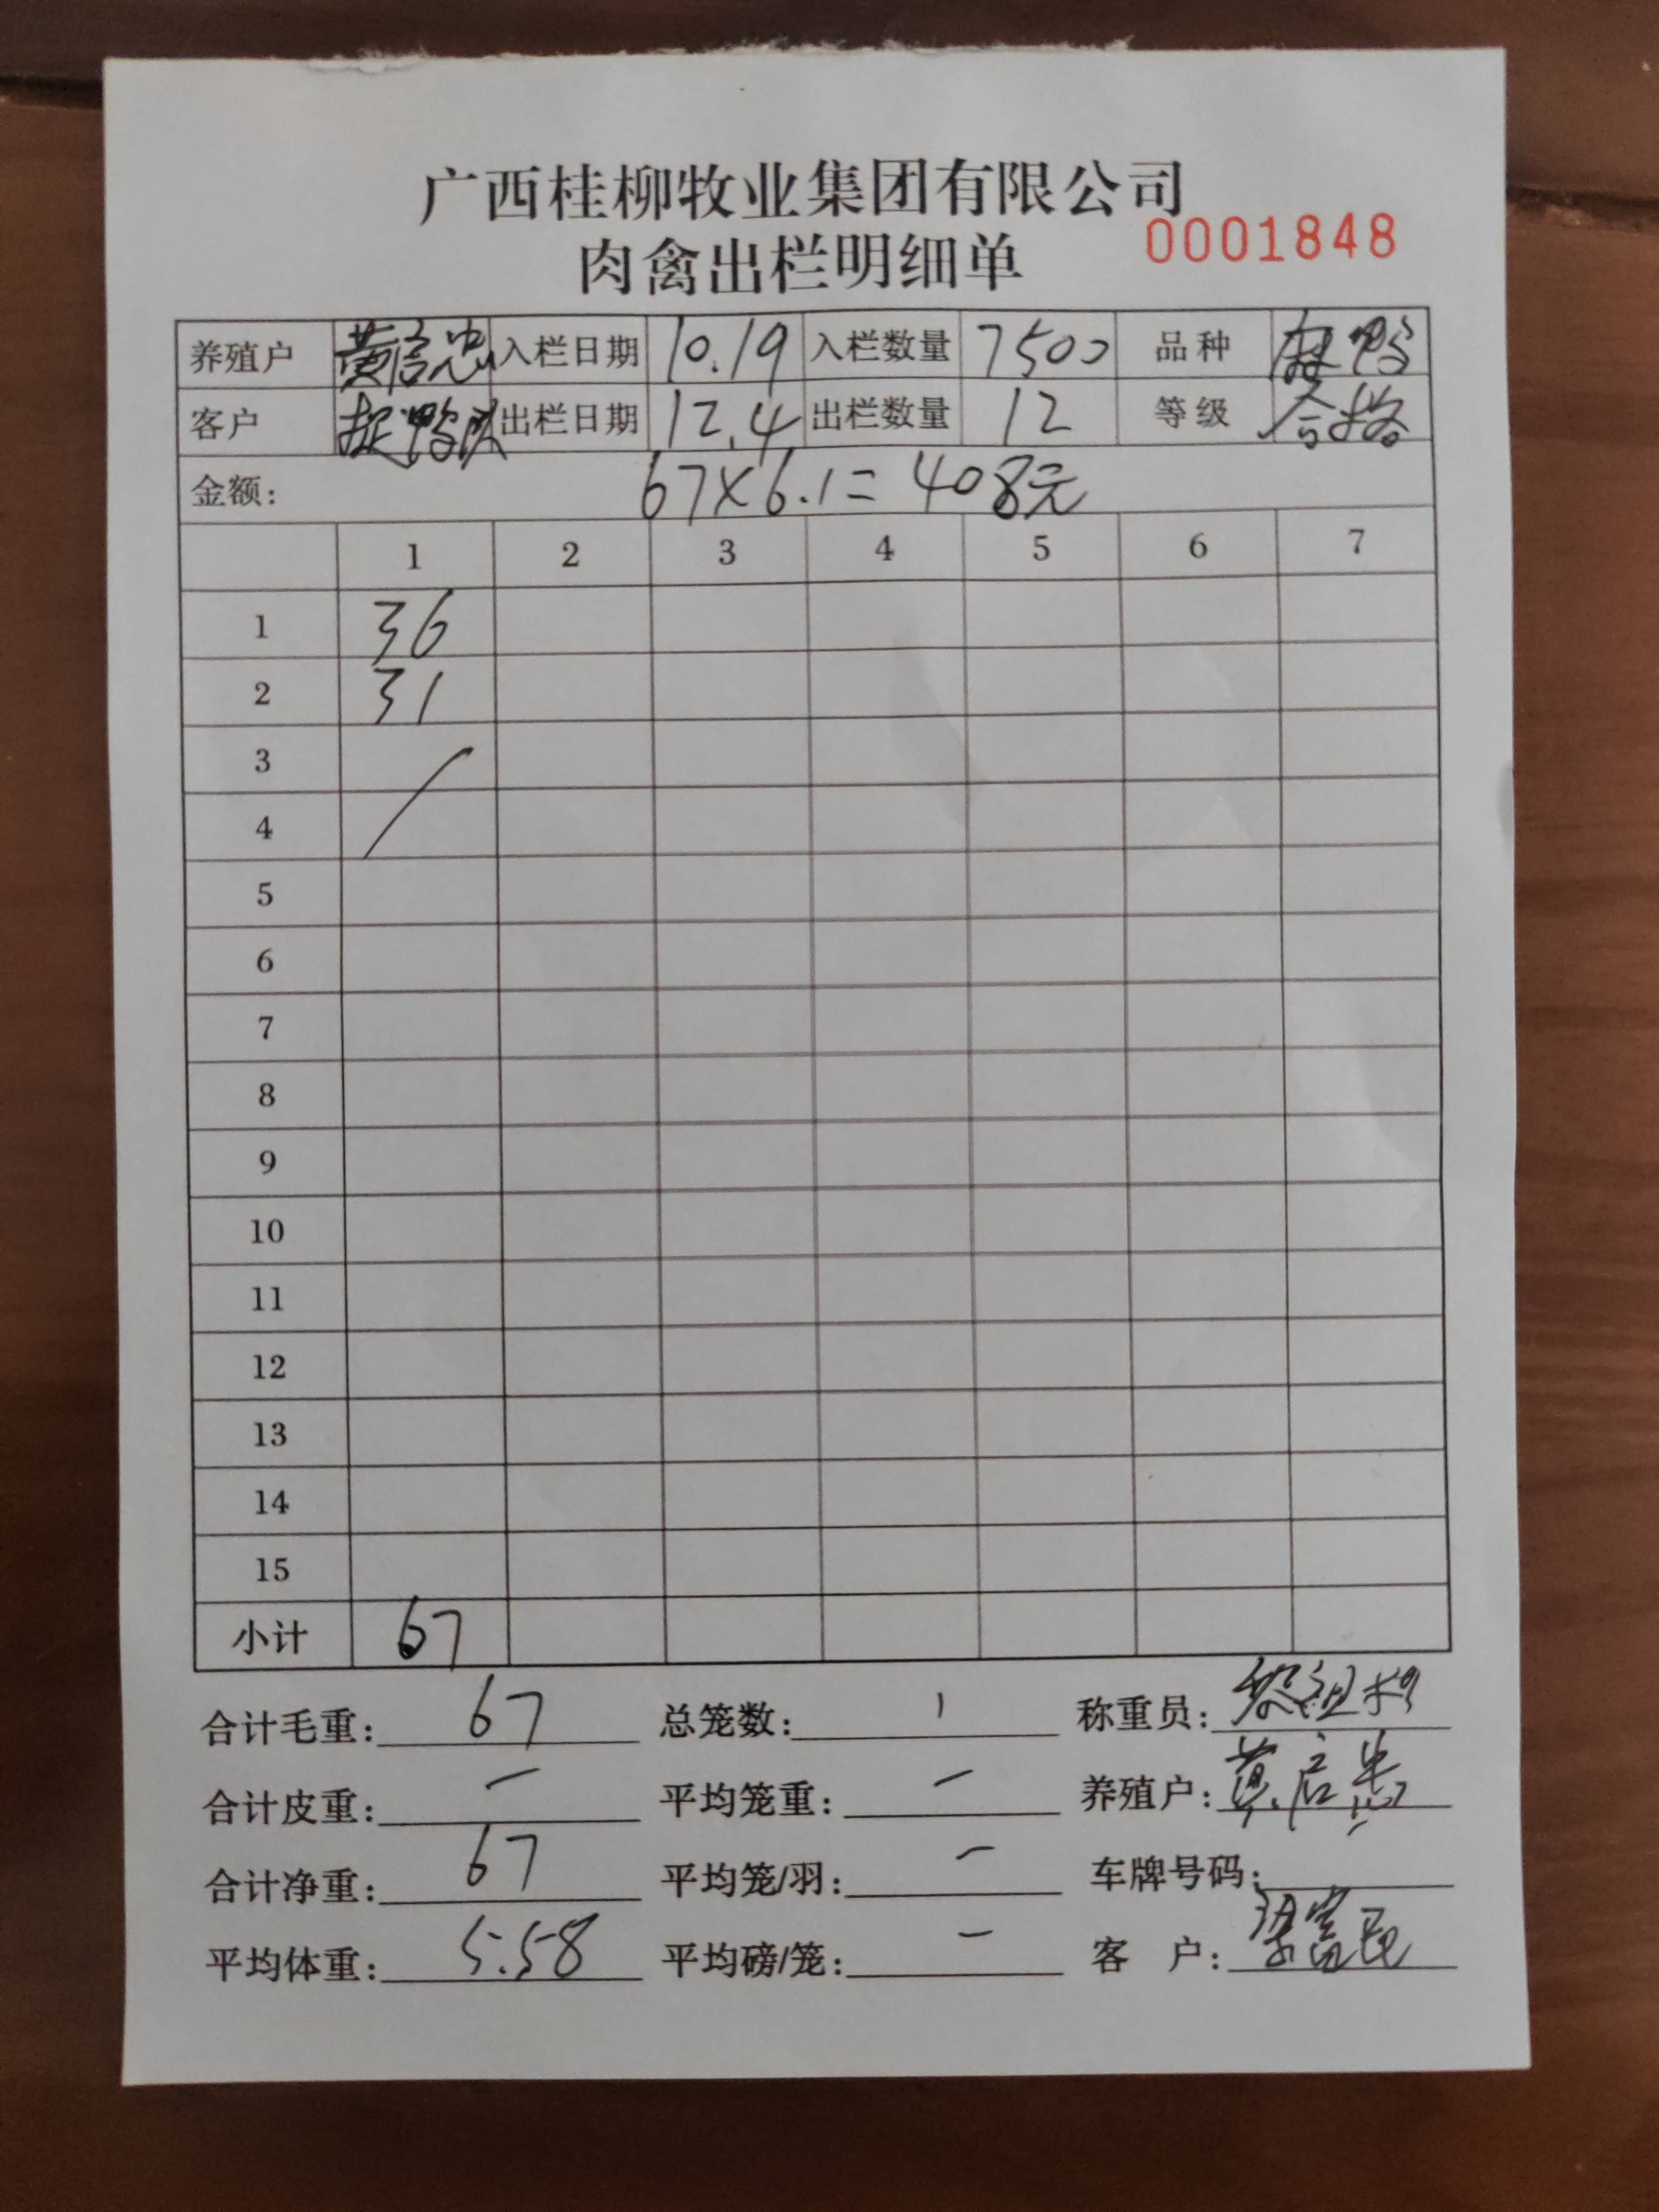 广西桂柳牧业集团有限公司
肉禽出栏明细单 0001848
养殖户 黄启忠 入栏日期 10.19 入栏数量 7500 品种 麻鸭
客户 捉鸭队 出栏日期 12.4 出栏数量 12 等级 合格
金额: 67×6.1=408元
1 2 3 4 5 6 7
1 36
2 31
3
4
5
6
7
8
9
10
11
12
13
14
15
小计 67
合计毛重: 67 总笼数: 1 称重员:
合计皮重: — 平均笼重: — 养殖户: 黄启忠
合计净重: 67 平均笼/羽: — 车牌号码:
平均体重: 5.58 平均磅/笼: — 客 户: